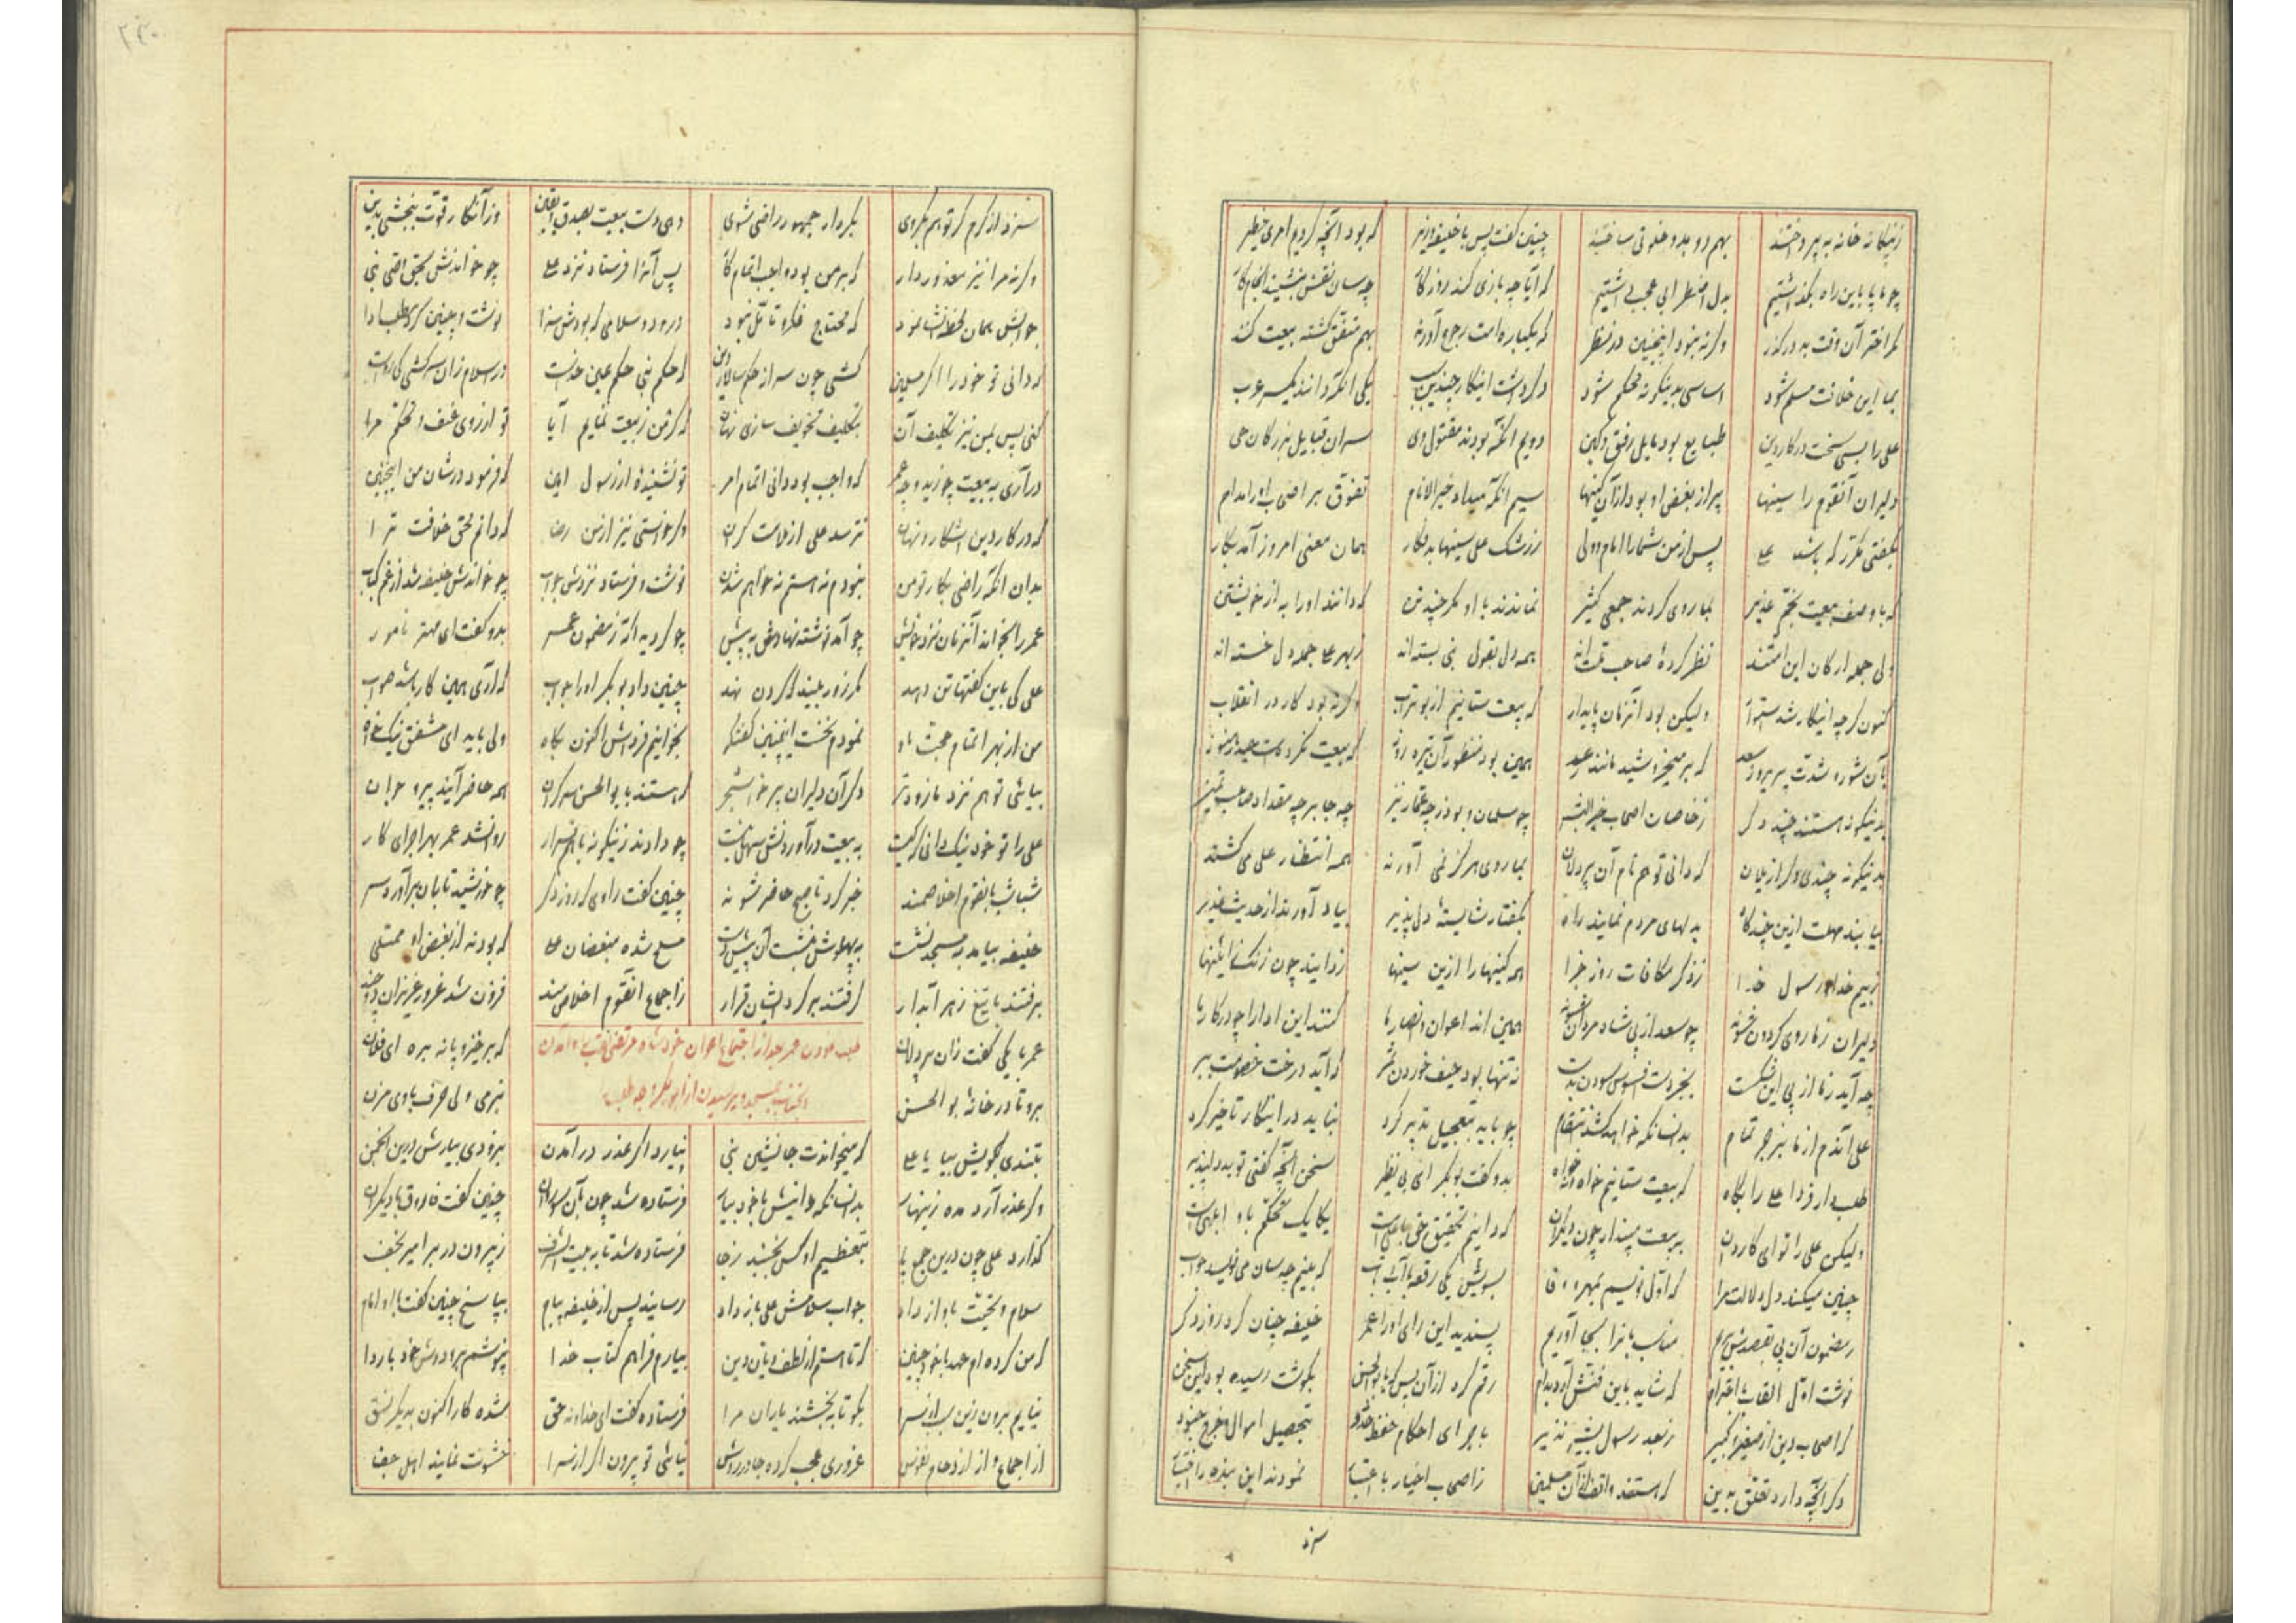 زبیکانه خانه بپرداختند بهم دو بدو خلوتی ساختند چنین گفت پس با خلیفه وزیر که بود آنچه کردیم امری خطیر
چو ما پا باین راه بگذاشتیم بدل اضطرابی عجب داشتیم که آیا چه بازی کند روزگار چه سان نقش بنشیند انجام کار
مگر اختر آن وقت بد در گذر وگرنه نبود اینچنین در نظر که یکباره امت رجوع آورند بهم متفق گشته بیعت کنند
بما این خلافت مسلم شود اساسی بدینگونه محکم شود دگر داشت اینکار چندین سبب یکی آنکه دانند یکسر عرب
علی را بسی سخت در کار دین طبایع بود مایل رفق و لین دویم آنکه بودند مقتول وی سران قبایل بزرگان حی
دلیران آنقوم را سینها پر از بغض او بود از آن کینها سیم آنکه میداد خیرالانام تفوق بر اصحاب او را مدام
بگفتی مکرر که باشد علی پس از من شما را امام و ولی ز رشک علی سینها بد فکار همان معنی امروز آمد بکار
که با وصف بیعت بخم غدیر بما روی کردند جمعی کثیر نماندند با او مگر چند تن که دانند او را به از خویشتن
ولی جمله ارکان این امتند نظر کردهٔ صاحب همه دل بقول نبی بسته اند ز بهر علی جمله دل خسته اند
کنون گرچه اینکار شد ولیکن بود آنزمان پایدار که بیعت ستانیم از بوتراب وگرنه بود کار در انقلاب
بآن شور و شدت پریروز سعد که بر میخروشید مانند رعد همین بود منظور آن تیره روز که بیعت نکردست حیدر هنوز
بدینگونه هستند چند دگر ز خاصان اصحاب خیرالبشر چو سلمان و بوذر چه عمار نیز چه جابر چه مقداد صاحب تمیز
بدینگونه چندی دگر از یلان که دانی تو هم نام آن پردلان بما روی هرگز نمی آورند همه انتظار علی می کشند
بیابند مهلت ازین چند گاه بدلهای مردم نمایند راه بگفتار شایستهٔ دلپذیر بیاد آورند از حدیث غدیر
ز بیم خدا و رسول خدا ز ذکر مکافات روز جزا همه کینها را ازین سینها زدایند چون زنگ از آئینها
دلیران ز ما روی گردون شوند چو سعد از پی شاه مردان شوند همین اند اعوان و انصار ما کنند این ادا را چو در کار ما
چه آید ز ما از پی این شکست بجز دست افسوس سودن بدست نه تنها بود حیف خوردن ثمر که آید درخت خصومت ببر
علی آندم از ما بزجر تمام بدانسانکه خواهد کشد انتقام چو باید بتعجیل تدبیر کرد نباید در اینکار تاخیر کرد
طلب دار فردا علی را پگاه که بیعت ستانیم خواه و نخواه بدو گفت بوبکر ای بی نظیر سخن آنچه گفتی تو بد دلپذیر
ولیکن علی را تو ای کاردان به بیعت مپندار چون دیگران که دانیم تحقیق حق با علیست یکایک تحکم باو ابلهیست
چنین میکند دل دلالت مرا که اول نویسم بمهر و وفا بسویش یکی رقعه با آب و تاب که بینم چه سان می نویسد جواب
ز مضمون آن پی بقصدش بریم مناسب بآنرا بجا آوریم پسندید این رای او را عمر خلیفه چنان کرد روز دگر
نوشت اول القاب با احترام که شاید باین فنش آرد بدام رقم کرد از آن پس که یا بوالحسن بگوشت رسیده بود این سخن
که اصحاب دین از صغیر و کبیر ز بعد رسول بشیر و نذیر باجرای احکام حفظ حدود بتحصیل اموال و خرج جنود
دگر آنچه دارد تعلق بدین که هستند واقف از آن مسلمین ز اصحاب اخیار با نمودند این بنده را
سزد
۲۳۰
سزد از کرم گر تو هم بگروی بکردار جمهور راضی شوی دهی دست بیعت بصدق و یقین وز آنکار قوت ببخشی بدین
وگرنه مرا نیز معذور دار که بر من بود واجب اتمام کار پس آنرا فرستاد نزد علی چو خواندش بحق وصی نبی
جوابش همان لحظه انشا نمود که محتاج فکر و تامل نبود درود و سلامی که بودش سزا نوشت و چنین کرد مطلب ادا
که دانی تو خود را اگر مسلمین کشی چون سر از حکم سالار دین که حکم نبی حکم عین خداست در اسلام زان سرکشی کی رواست
کنی پس بمن نیز تکلیف آن بتکلیف تخویف سازی نهان که گر من ز بیعت نمایم ابا تو از روی عنف و تحکم مرا
در آری به بیعت چو زید و چه عمر که واجب بود دانی اتمام امر تو نشنیدهٔ از رسول امین که فرمود در شان من اینچنین
که در کار دین آشکار و نهان نترسد علی از ملامت گران وگر خواستی نیز از من رضا که دانم بحق خلافت ترا
بدان آنکه راضی بکار تو من نبودم نه هستم نه خواهم شدن نوشت و فرستاد نزدش جواب چو خواندش خلیفه شد از غم کباب
عمر را بخواند آنزمان نزد خویش چو آمد نوشته نهادش به پیش چو گردید آگه ز مضمون عمر بدو گفت ای مهتر نامور
علی کی باین گفتها تن دهد مگر زور بیند که گردن نهد چنین داد بوبکر او را جواب که آری همین کار باشد صواب
من از بهر اتمام حجت باو نمودم نخست اینچنین گفتگو بخوانیم فردایش اکنون پگاه ولی باید ای مشفق نیک خواه
بیائی تو هم نزد ما زودتر دگر آن دلیران پرخاشخر که هستند با بوالحسن سرگران همه حاضر آیند پیر و جوان
علی را تو خود نیک دانی که کیست به بیعت در آوردنش سهل نیست چو دادند زینگونه با هم قرار روان شد عمر بهر اجرای کار
شباشب بانقوم اخلاصمند خبر کرد تا صبح حاضر شوند چنین گفت راوی که روز دگر چو خورشید تابان برآورد سر
خلیفه بیامد بمسجد نشست به پهلوش بنشست آن مسلح شده مبغضان علی که بودند از بغض او ممتلی
برفتند با تیغ زهر آبدار گرفتند بر گرد ایشان قرار ز اجماع آنقوم اخلاصمند فزون شد غرور عزیزان دوچند
عمر با یکی گفت زان پردلان که برخیز و پا نه بره ای فلان
طلب نمودن عمر بعد از اجتماع اعوان خود شاه مرتضی را و آمدن
آنجناب بمسجد و پرسیدن از ابوبکر وجه طلب
برو تا در خانهٔ بوالحسن بنرمی ولی حرف با وی مزن
بتندی بگویش بیا یا علی که میخواندت جانشین نبی نیارد اگر عذر در آمدن بزودی بیارش درین انجمن
وگر عذر آرد مده زینهار بدانسانکه دانیش با خود بیار فرستاده شد چون بآن سو روان چنین گفت فاروق با دیگران
گذارد علی چون درین جمع پا بتعظیم او کس نجنبد ز جا فرستاده شد تا به بیت الشرف ز بیرون در بر امیر نجف
سلام و تحیت باو باز داد جواب سلامش علی باز داد رسانید پس از خلیفه پیام بپاسخ چنین گفت با او امام
که من کرده ام عهد با خود چنین که تا هستم از لطف دیان دین بیارم فراهم کتاب خدا نپوشم بر و دوش خود با ردا
نیایم برون زین سرا بگو تا ببخشند یاران مرا فرستاده گفت ای خداوند حق شده کار اکنون بدیگر نسق
از اجماع و از ازدحام نفوس غروری عجب کرده جا در رئوس نیائی تو بیرون اگر از سرا خشونت نمایند اهل جفا